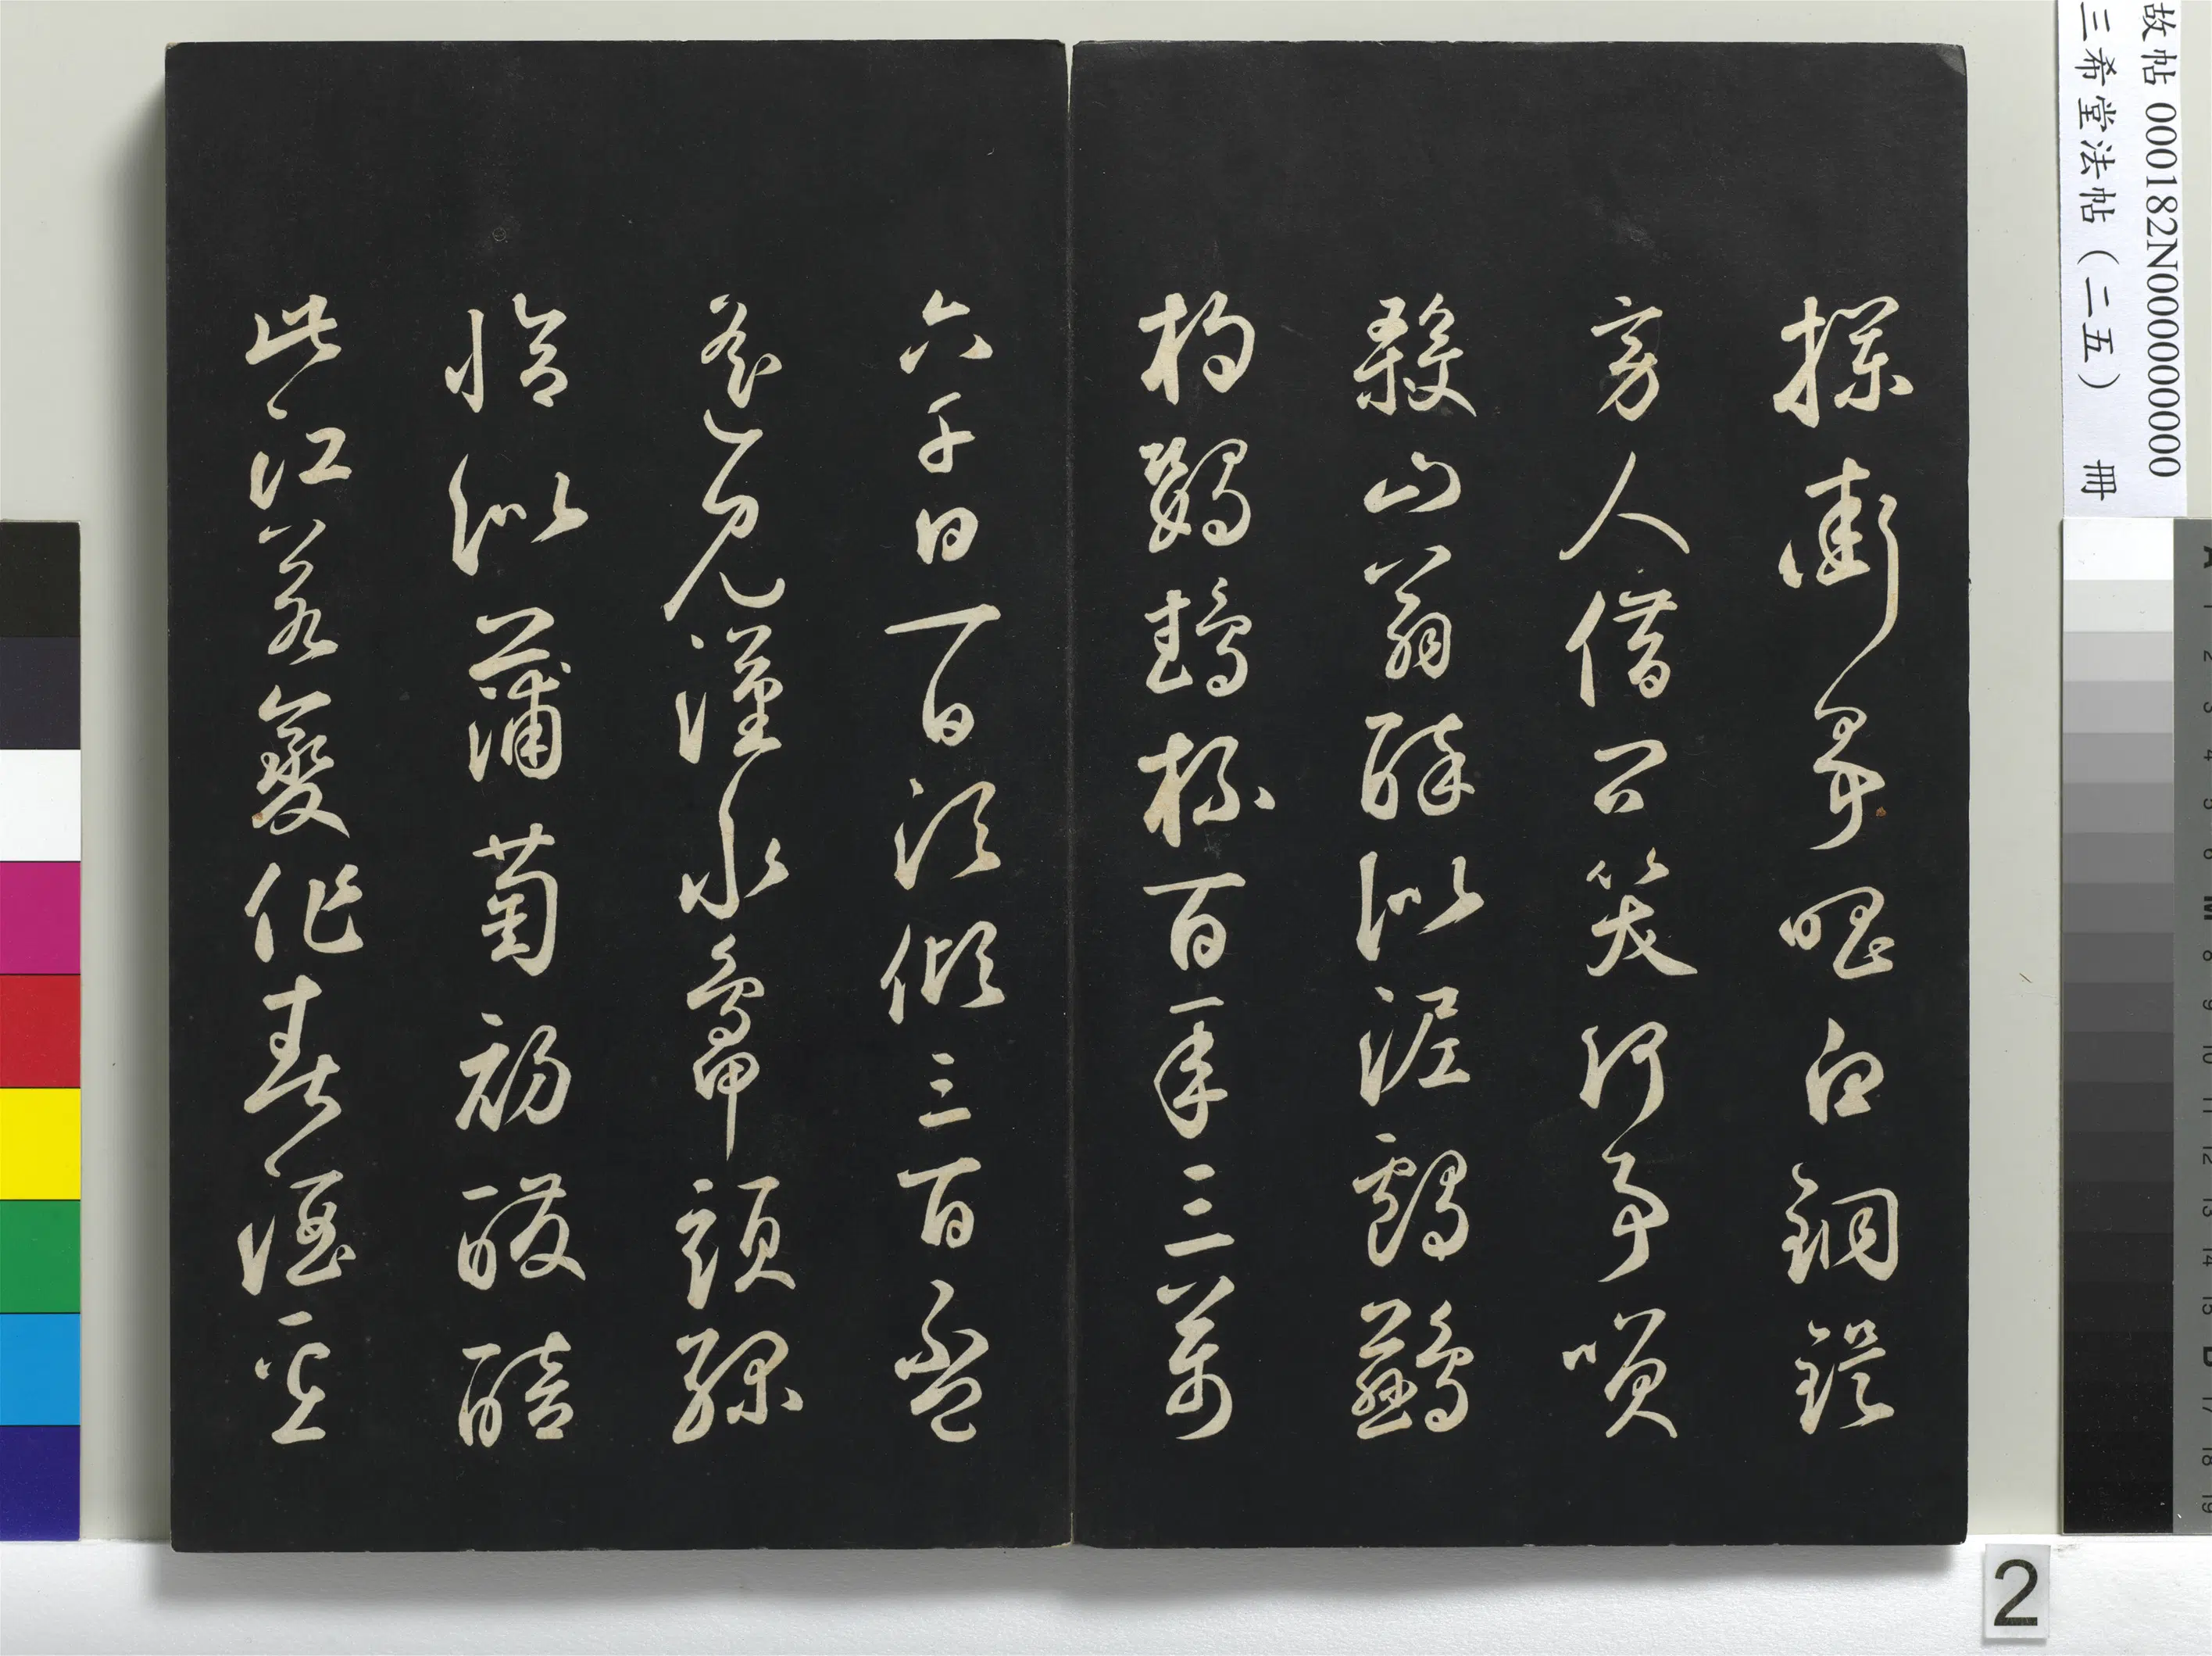 故帖 000182N000000000
三希堂法帖(二五) 冊
攔街爭唱白銅鍉
旁人借問笑何事咲
殺山翁醉似泥鸕鶿
杓鸚鵡杯百年三萬
六千日一日須傾三百盃
遙見漢水鴨頭綠
恰似蒲萄初醱醅
此江若變作春酒壘
2